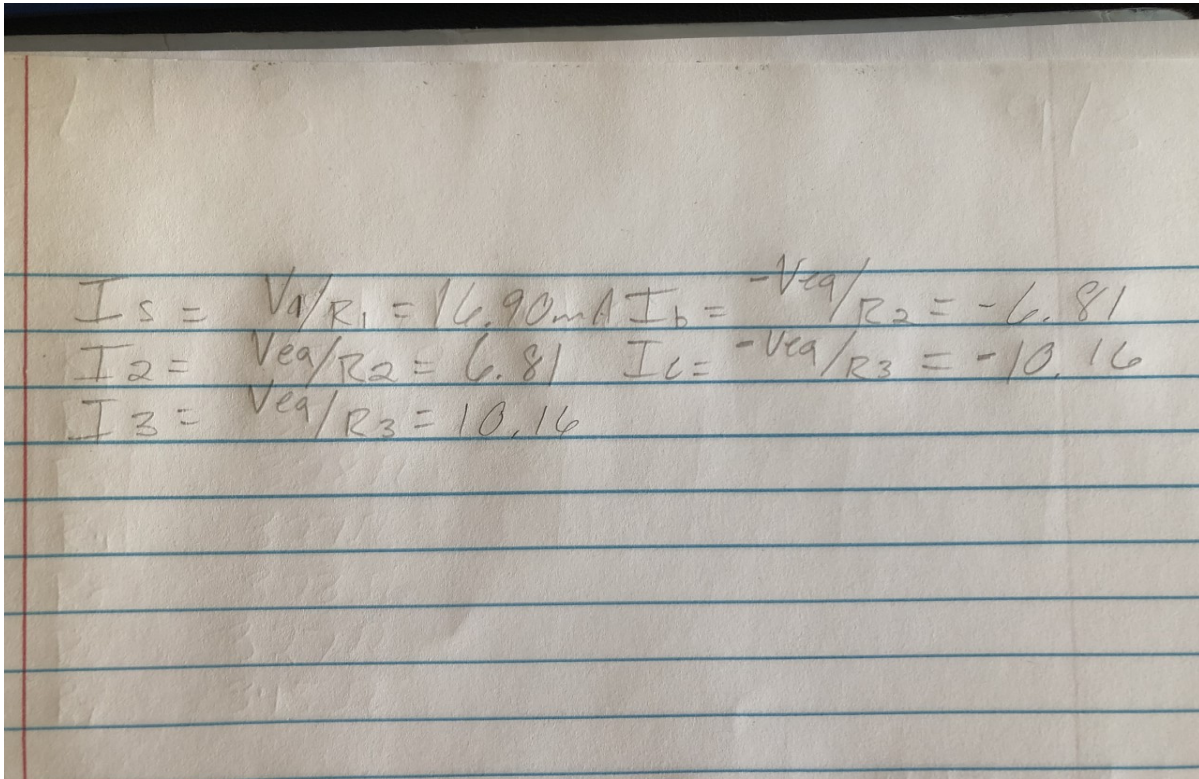 Is = Va/R1 = 16.90mA Ib = -Vea/R2 = -6.81
I2 = Vea/R2 = 6.81 Ic = -Vea/R3 = -10.16
I3 = Vea/R3 = 10.16